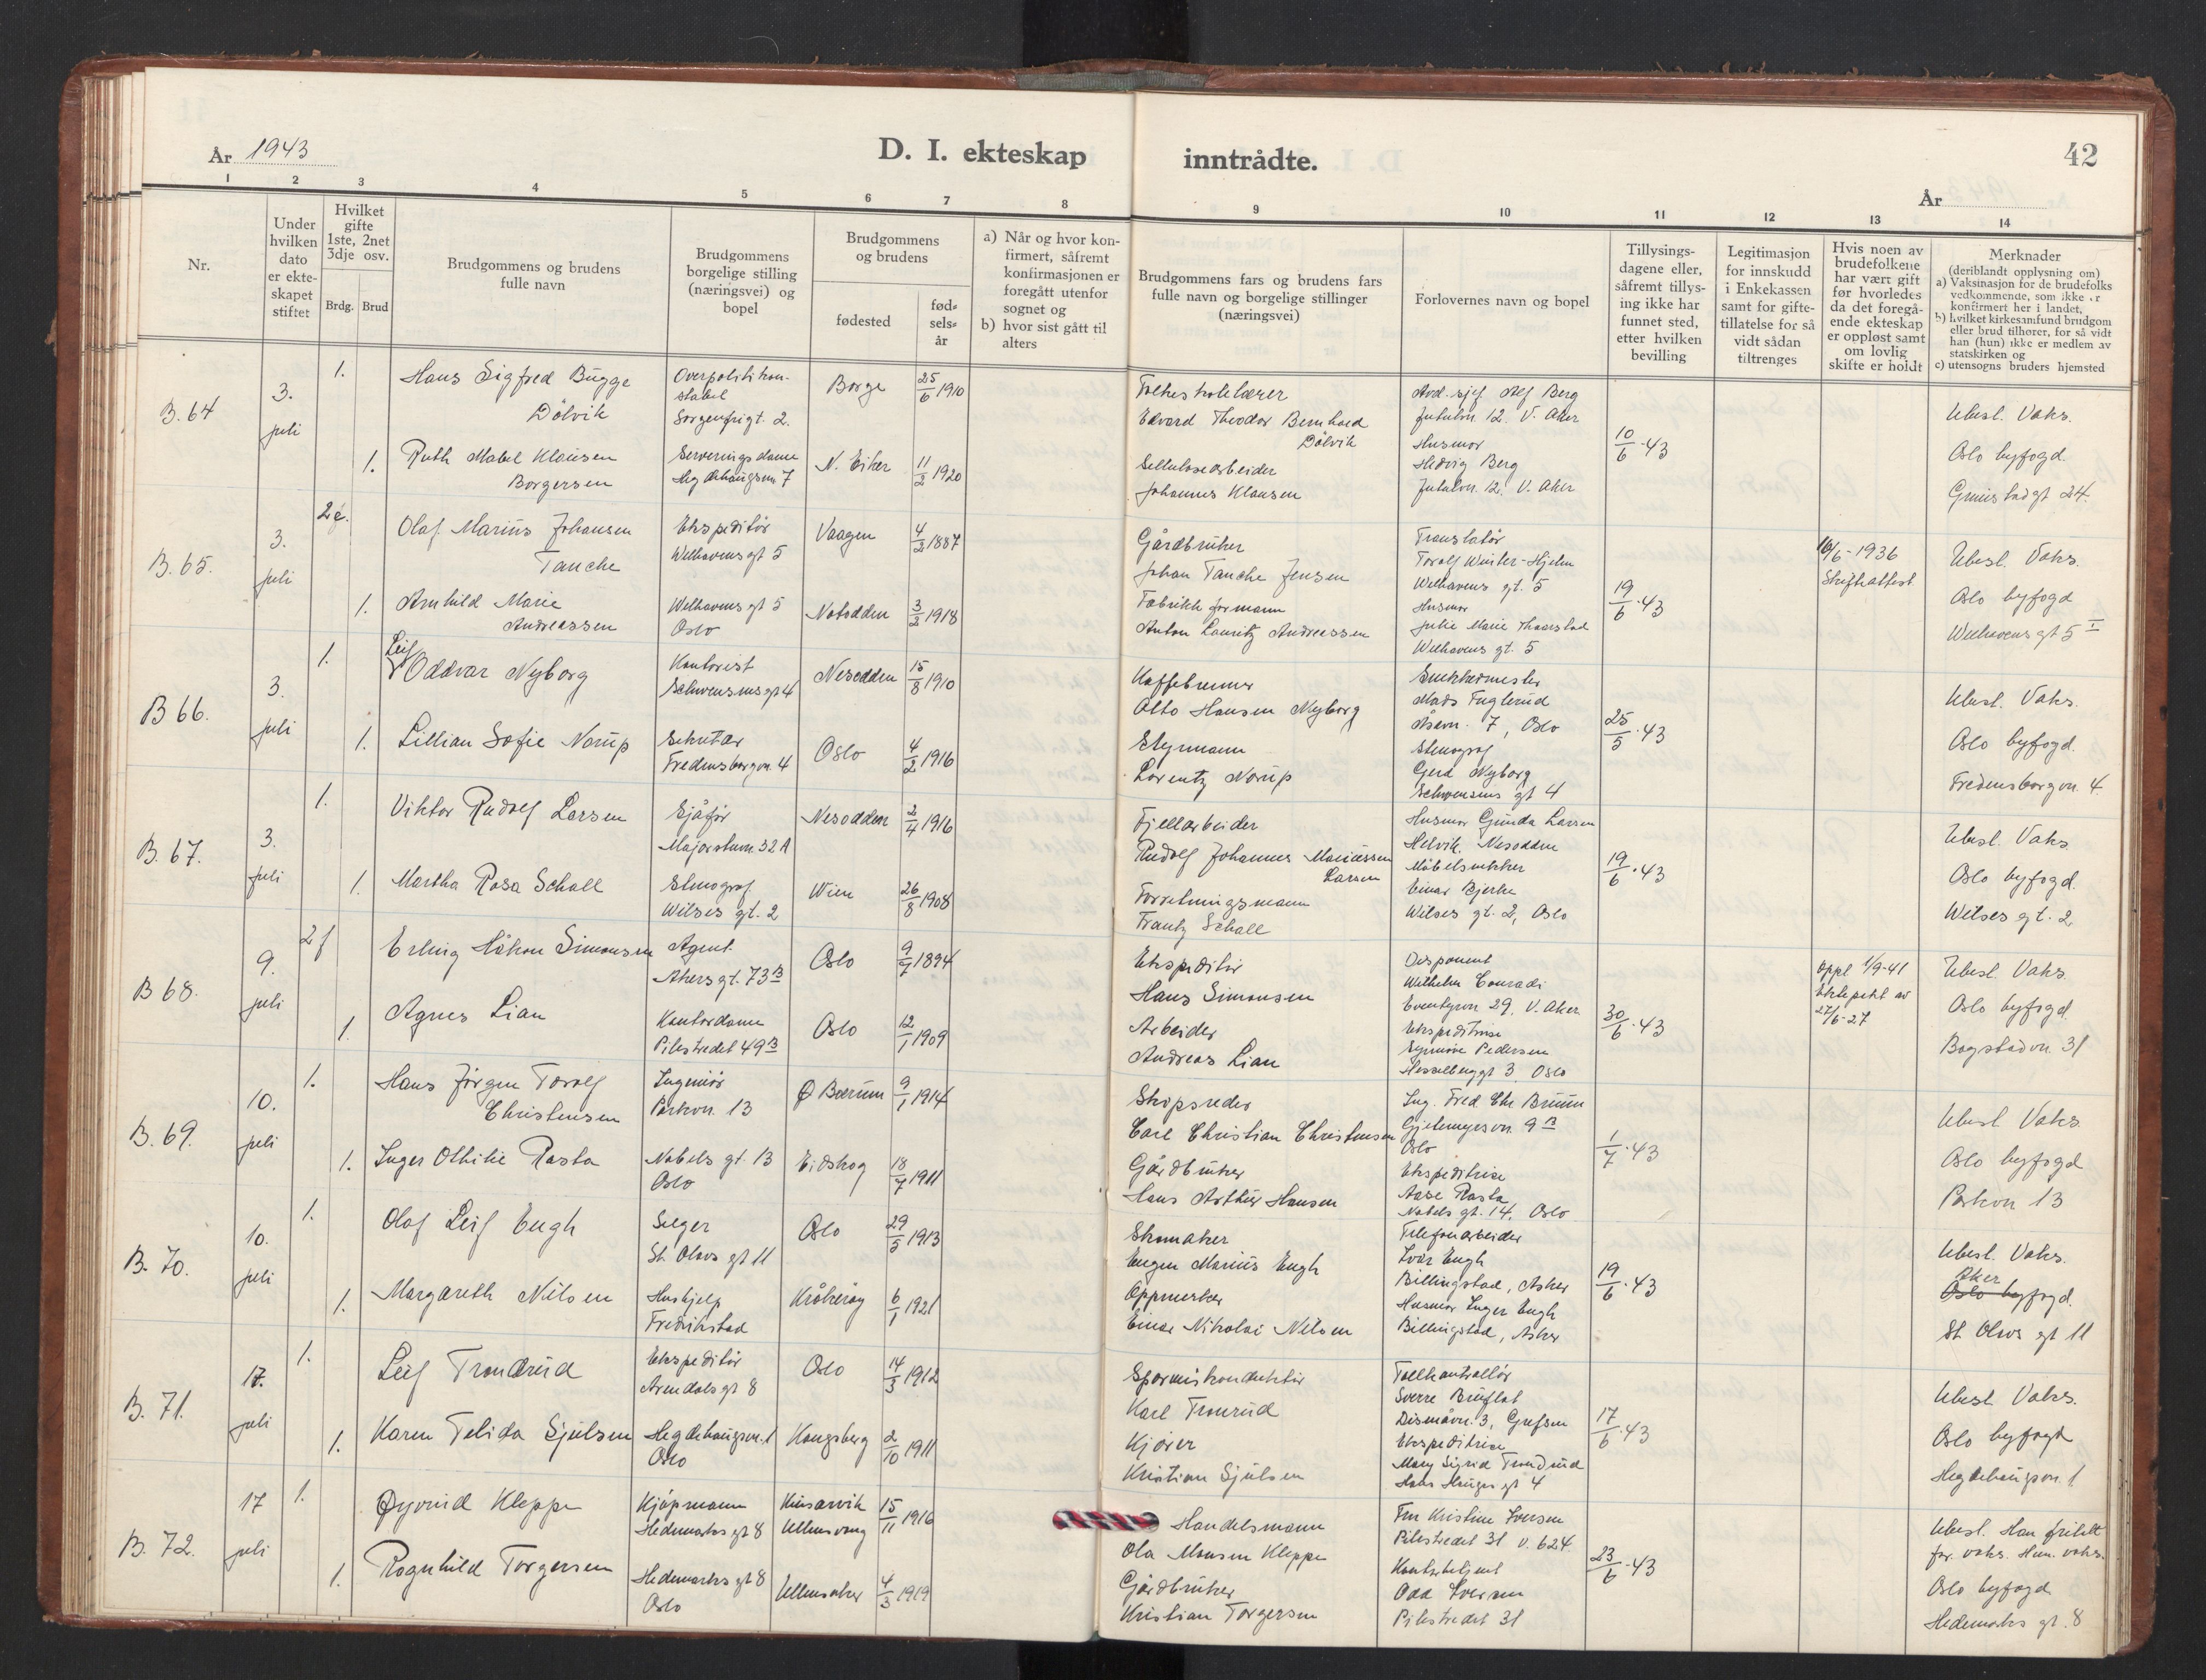 År 1943
D. I. ekteskap inntrådte.
42
År
1 2 3 4 5 6 7 8 9 10 11 12 13 14
Nr.
Under hvilken dato er ekte-skapet stiftet
Hvilket gifte 1ste, 2net 3dje osv.
Brdg. Brud
Brudgommens og brudens fulle navn
Brudgommens borgelige stilling (næringsvei) og bopel
Brudgommens og brudens
fødested
fød-sels-år
a) Når og hvor kon-firmert, såfremt konfirmasjonen er foregått utenfor sognet og
b) hvor sist gått til alters
Brudgommens fars og brudens fars fulle navn og borgelige stillinger (næringsvei)
Forlovernes navn og bopel
Tillysings-dagene eller, såfremt tillys-ing ikke har funnet sted, etter hvilken bevilling
Legitimasjon for innskudd i Enkekassen samt for gifte-tillatelse for så vidt sådan tiltrenges
Hvis noen av brudefolkene har vært gift før hvorledes da det foregå-ende ekteskap er oppløst samt om lovlig skifte er holdt
Merknader
(deriblandt opplysning om)
a) Vaksinasjon for de brudefolks vedkommende, som ikke er konfirmert her i landet,
b) hvilket kirkesamfund brudgom eller brud tilhører, for så vidt han (hun) ikke er medlem av statskirken og
c) utensogns bruders hjemsted
B. 64
3. juli
1.
Hans Sigfred Bugge
Dölvik
Overpolitikon-
stabel
Sorgenfrigt. 2.
Borge
25/6 1910
Folkeskolelærer
Edvard Theodor Bernhard
Dölvik
Avd. sjef Alf Berg
Jutulvn. 12. V. Aker
10/6 · 43
Ubesl. Vaks.
1.
Ruth Mabel Klausen
Borgersen
Serveringsdame
Hegdehaugsvn. 7
N. Eiker
11/2 1920
Sellulosearbeider
Johannes Klausen
Husmor
Hedvig Berg
Jutulvn. 12. V. Aker
Oslo byfogd.
24.
B. 65.
3. juli
2
Olaf Marius Johansen
Tanche
Ekspeditör
Welhavensgt 5
Vaagen
4/2 1887
Gårdbruker
Johan Tanche Jensen
Translatör
Torolf Winter-Hjelm
Welhavens gt. 5
19/6 · 43
/6-1936
Skifteattest
Ubesl. Vaks.
1.
Arnhild Marie
Andreassen
Welhavens gt 5
Oslo
Notodden
3/2 1918
Fabrikkformann
Anton Lauritz Andreassen
Husmor
Julie Marie Thaarstad
Welhavens gt. 5
Oslo byfogd
Welhavensgt 5 I
B 66.
3. juli
1.
Leif
Oddvar Nyborg
Kontorist
Schwensensgt 4
Nesodden
15/8 1910
Kaffebrenner
Otto Hansen Nyborg
Snekkermester
Mads Fuglerud
Åsevn. 7, Oslo
25/5 · 43
Ubesl. Vaks.
1.
Lillian Sofie Norup
Sekretær
Fredensborgvn. 4
Oslo
4/2 1916
Styrmann
Lorentz Norup
Stenograf
Gerd Nyborg
Schwensens gt 4
Oslo byfogd.
Fredensborgvn. 4.
B. 67.
3. juli
1.
Viktor Rudolf Larsen
Sjåfør
Majorstuvn. 32 A
Nesodden
2/4 1916
Fjellarbeider
Rudolf Johannes Mariussen
Larsen
Husmor Gunda Larsen
Helvik. Nesodden
19/6 · 43
Ubesl. Vaks
1.
Martha Rosa Schall
Stenograf
Wilses gt. 2
Wien
26/8 1908
Forretningsmann
Frantz Schall
Möbelsnekker
Einar Bjerke
Wilses gt. 2, Oslo
Oslo byfogd.
Wilses gt. 2
B 68.
9. juli
2 f
Erling Håkon Simonsen
Agent.
Akers gt. 73 B
Oslo
9/7 1894
Ekspeditör
Hans Simonsen
Disponent
Wilhelm Conradi
Eventyrvn 29, V. Aker.
30/6 · 43
Oppl 1/9-41
Ektepakt av
27/6-27
Ubesl. Vaks.
1.
Agnes Lian
Kontordame
Pilestredet 49 B
Oslo
12/1 1909
Arbeider
Andreas Lian
Ekspeditrise
Synnöve Pedersen
Hesselberggt 3. Oslo
Oslo byfogd.
Bogstadvn. 31
B. 69.
10. juli
1.
Hans Jörgen Torolf
Christensen
Ingeniör
Parkvn. 13
Ø Bærum
9/1 1914
Skipsreder
Carl Christian Christensen
Ing. Fred Chr Bruun
Gjetemyrsvn. 9 B
Oslo
1/7 · 43
Ubesl Vaks
1.
Inger Othilie Rasta
Nobels gt. 13
Oslo
Eidskog
18/7 1911
Gårdbruker
Hans Arthur Hansen
Ekspeditrise
Aase Rasta
Nobels gt. 14. Oslo
Oslo byfogd
Parkvn 13
B. 70.
10. juli
1.
Olaf Leif Engh
Selger
St. Olavs gt 11
Oslo
29/5 1913
Skomaker
Eugen Marius Engh
Telefonarbeider
Ivar Engh
Billingstad, Asker
19/6 · 43
Ubesl. Vaks.
1.
Margareth Nilsen
Hushjelp
Fredrikstad
Kråkeröy
6/1 1921
Oppmerker
Einar Nikolai Nilsen
Husmor Inger Engh
Billingstad, Asker
Aker
Oslo byfogd.
St. Olavs gt 11
B. 71.
17. juli
1.
Leif Trondrud
Ekspeditör
Arendalsgt 8
Oslo
14/3 1912
Sporveiskonduktör
Karl Tronrud
Tollkontrollör
Sverre Bruflat
Disenåvn. 3, Grefsen
17/6 · 43
Ubesl. Vaks.
1.
Karen Telida Sjulsen
Hegdehaugsvn. 1
Oslo
Kongsberg
2/10 1911
Kjörer
Kristian Sjulsen
Ekspeditrise
Mary Sigrid Trondrud
Hans Hauges gt 4
Oslo byfogd
Hegdehaugsvn. 1
B. 72.
17 juli
1.
Øyvind Kleppe
Kjöpmann
Hedemarks gt 8
Kinsarvik
Ullensvang
15/11 1916
Handelsmann
Ola Monsen Kleppe
Fru Kristine Iversen
Pilestredet 31 v. 624.
23/6 · 43
Ubesl. Han fritatt
for vaks. Hun. vaks.
1.
Ragnhild Torgersen
Hedemarks gt 8
Oslo
Ullensaker
4/3 1919
Gårdbruker
Kristian Torgersen
Kontorbetjent
Odd Iversen
Pilestredet 31
Oslo byfogd
Hedemarks gt. 8